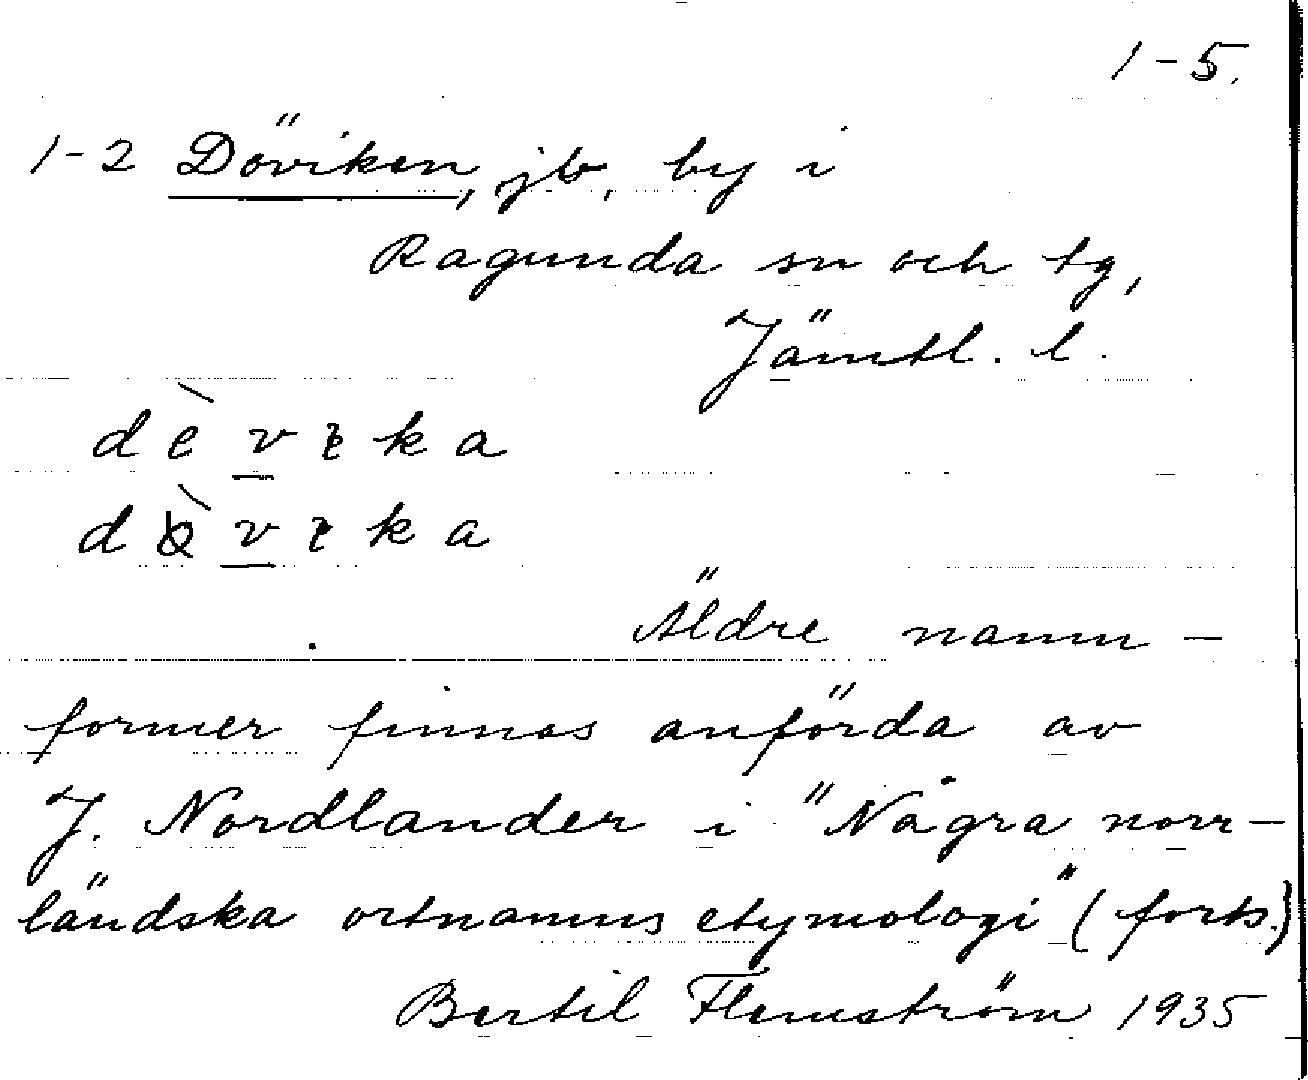 1-5.
1-2 Döviken, jb, by i
Ragunda sn och tg,
Jämtl. l.
Äldre namn-
former finnas anförda av
J. Nordlander i "Några norr-
ländska ortnamns etymologi" (forts.)
Bertil Flemström 1935